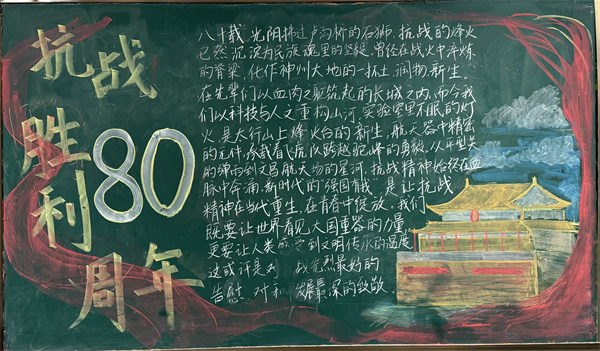 抗战
胜利
80
周年
八十载光阴拂过卢沟桥的石狮，抗战的烽火
已然沉淀为民族魂里的坚硬，曾经在战火中淬炼
的脊梁，化作神州大地的一抔土，润物新生。
在先辈们以血肉之躯筑起的长城之内，而今我
们以科技与人文重构山河，实验室里不眠的灯
火是太行山上烽火台的新生，航天器中精密
的元件，承载着飞虎队跨越驼峰的勇毅，从
的弹雨到文昌航天的星河，抗战精神始终在血
脉中奔涌，新时代的"强国有我"，是让抗战
精神在当代重生，在青春中绽放。我们
既要让世界看见大国重器的力量，
更要让人类感受到文明传承的温度
这或许是对 战先烈最好的
告慰，对和 发展最深的致敬。